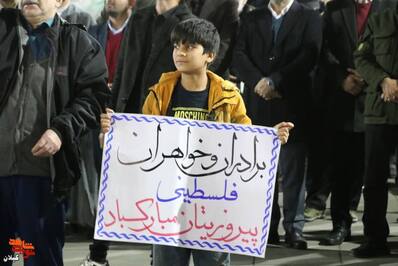 برادران و خواهران
فلسطینی
پیروزیتان مبارکباد
MOSCHINO
گیلان